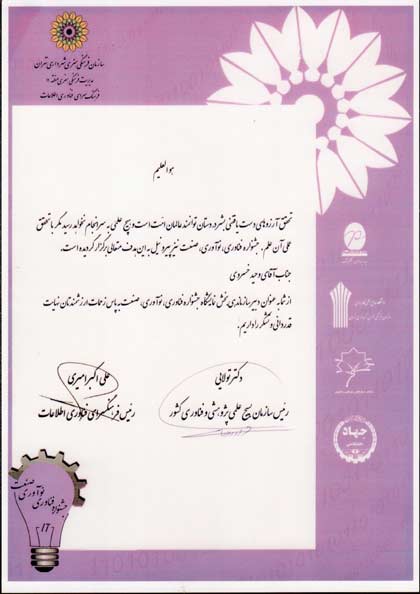 سازمان فرهنگی هنری شهرداری تهران
مدیریت فرهنگی هنری منطقه ۱۰
فرهنگ سرای فناوری اطلاعات
هوالعلیم
تحقق آرزوهای دست یافتنی بشر در دستان توانمند عالمان امت است و هیچ علمی به سرانجام نخواهد رسید مگر با تحقق
عملی آن علم. جشنواره فناوری، نوآوری، صنعت نیز پیرو نیل به این هدف متعالی برگزار گردیده است.
جناب آقای وحید خسروی
از شما به عنوان دبیر سازماندهی بخش نمایشگاه جشنواره فناوری، نوآوری، صنعت به پاس زحمات ارزشمندتان نهایت
قدردانی و تشکر را داریم.
دکتر تولایی
رئیس سازمان بسیج علمی پژوهشی و فناوری کشور
علی اکبر امیری
رئیس فرهنگسرای فناوری اطلاعات
جهاد
جشنواره فناوری نوآوری صنعت
IT